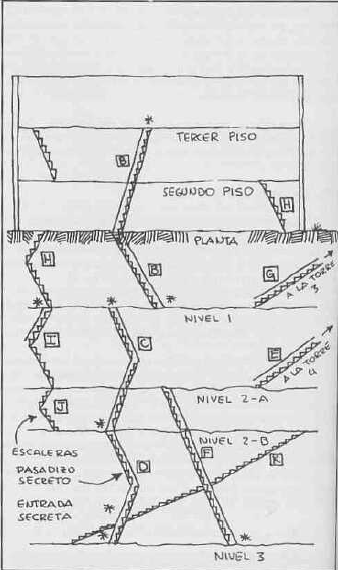 *
TERCER PISO
B
SEGUNDO PISO
H
*
PLANTA
H
B
G
A LA TORRE
3
*
*
*
NIVEL 1
I
C
E
A LA TORRE
4
J
NIVEL 2-A
NIVEL 2-B
ESCALERAS
PASADIZO
SECRETO
D
F
K
ENTRADA
SECRETA
*
*
*
NIVEL 3